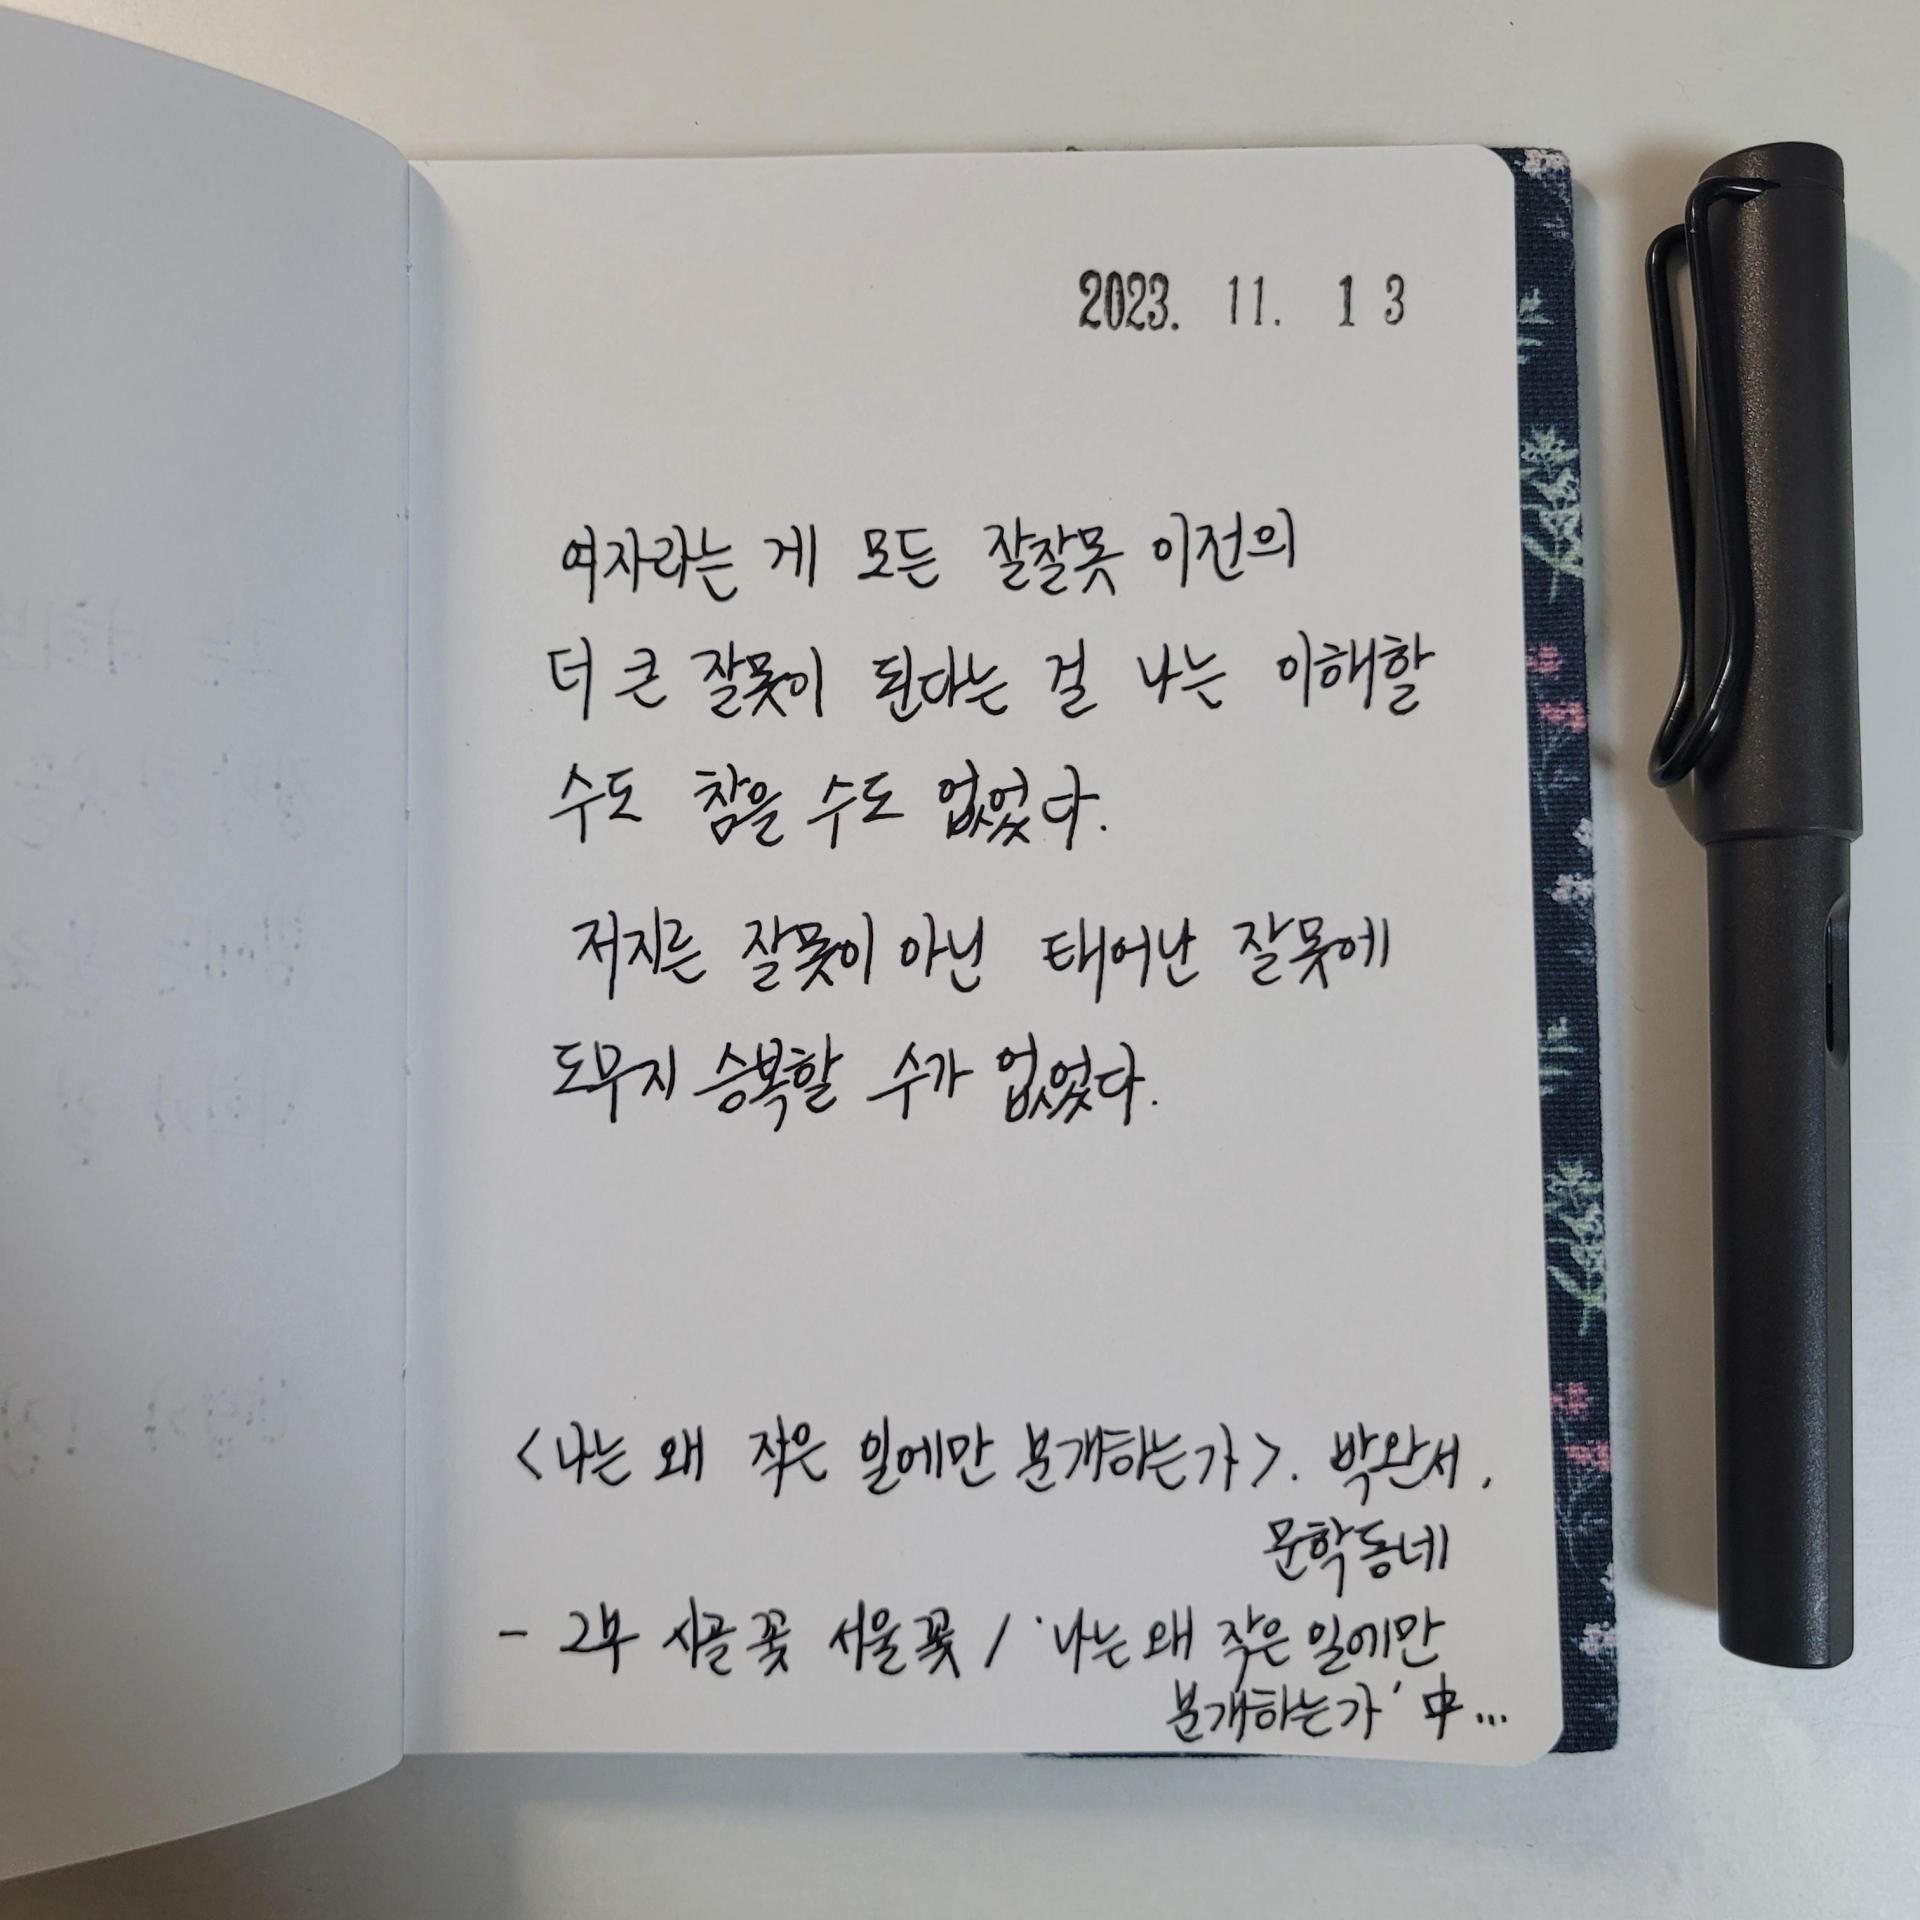 2023. 11. 13
여자라는 게 모든 잘잘못 이전의
더 큰 잘못이 된다는 걸 나는 이해할
수도 참을 수도 없었다.
저지른 잘못이 아닌 태어난 잘못에
도무지 승복할 수가 없었다.
<나는 왜 작은 일에만 분개하는가>. 박완서,
문학동네
- 2부 시골 꽃 서울 꽃 / '나는 왜 작은 일에만
분개하는가' 中...